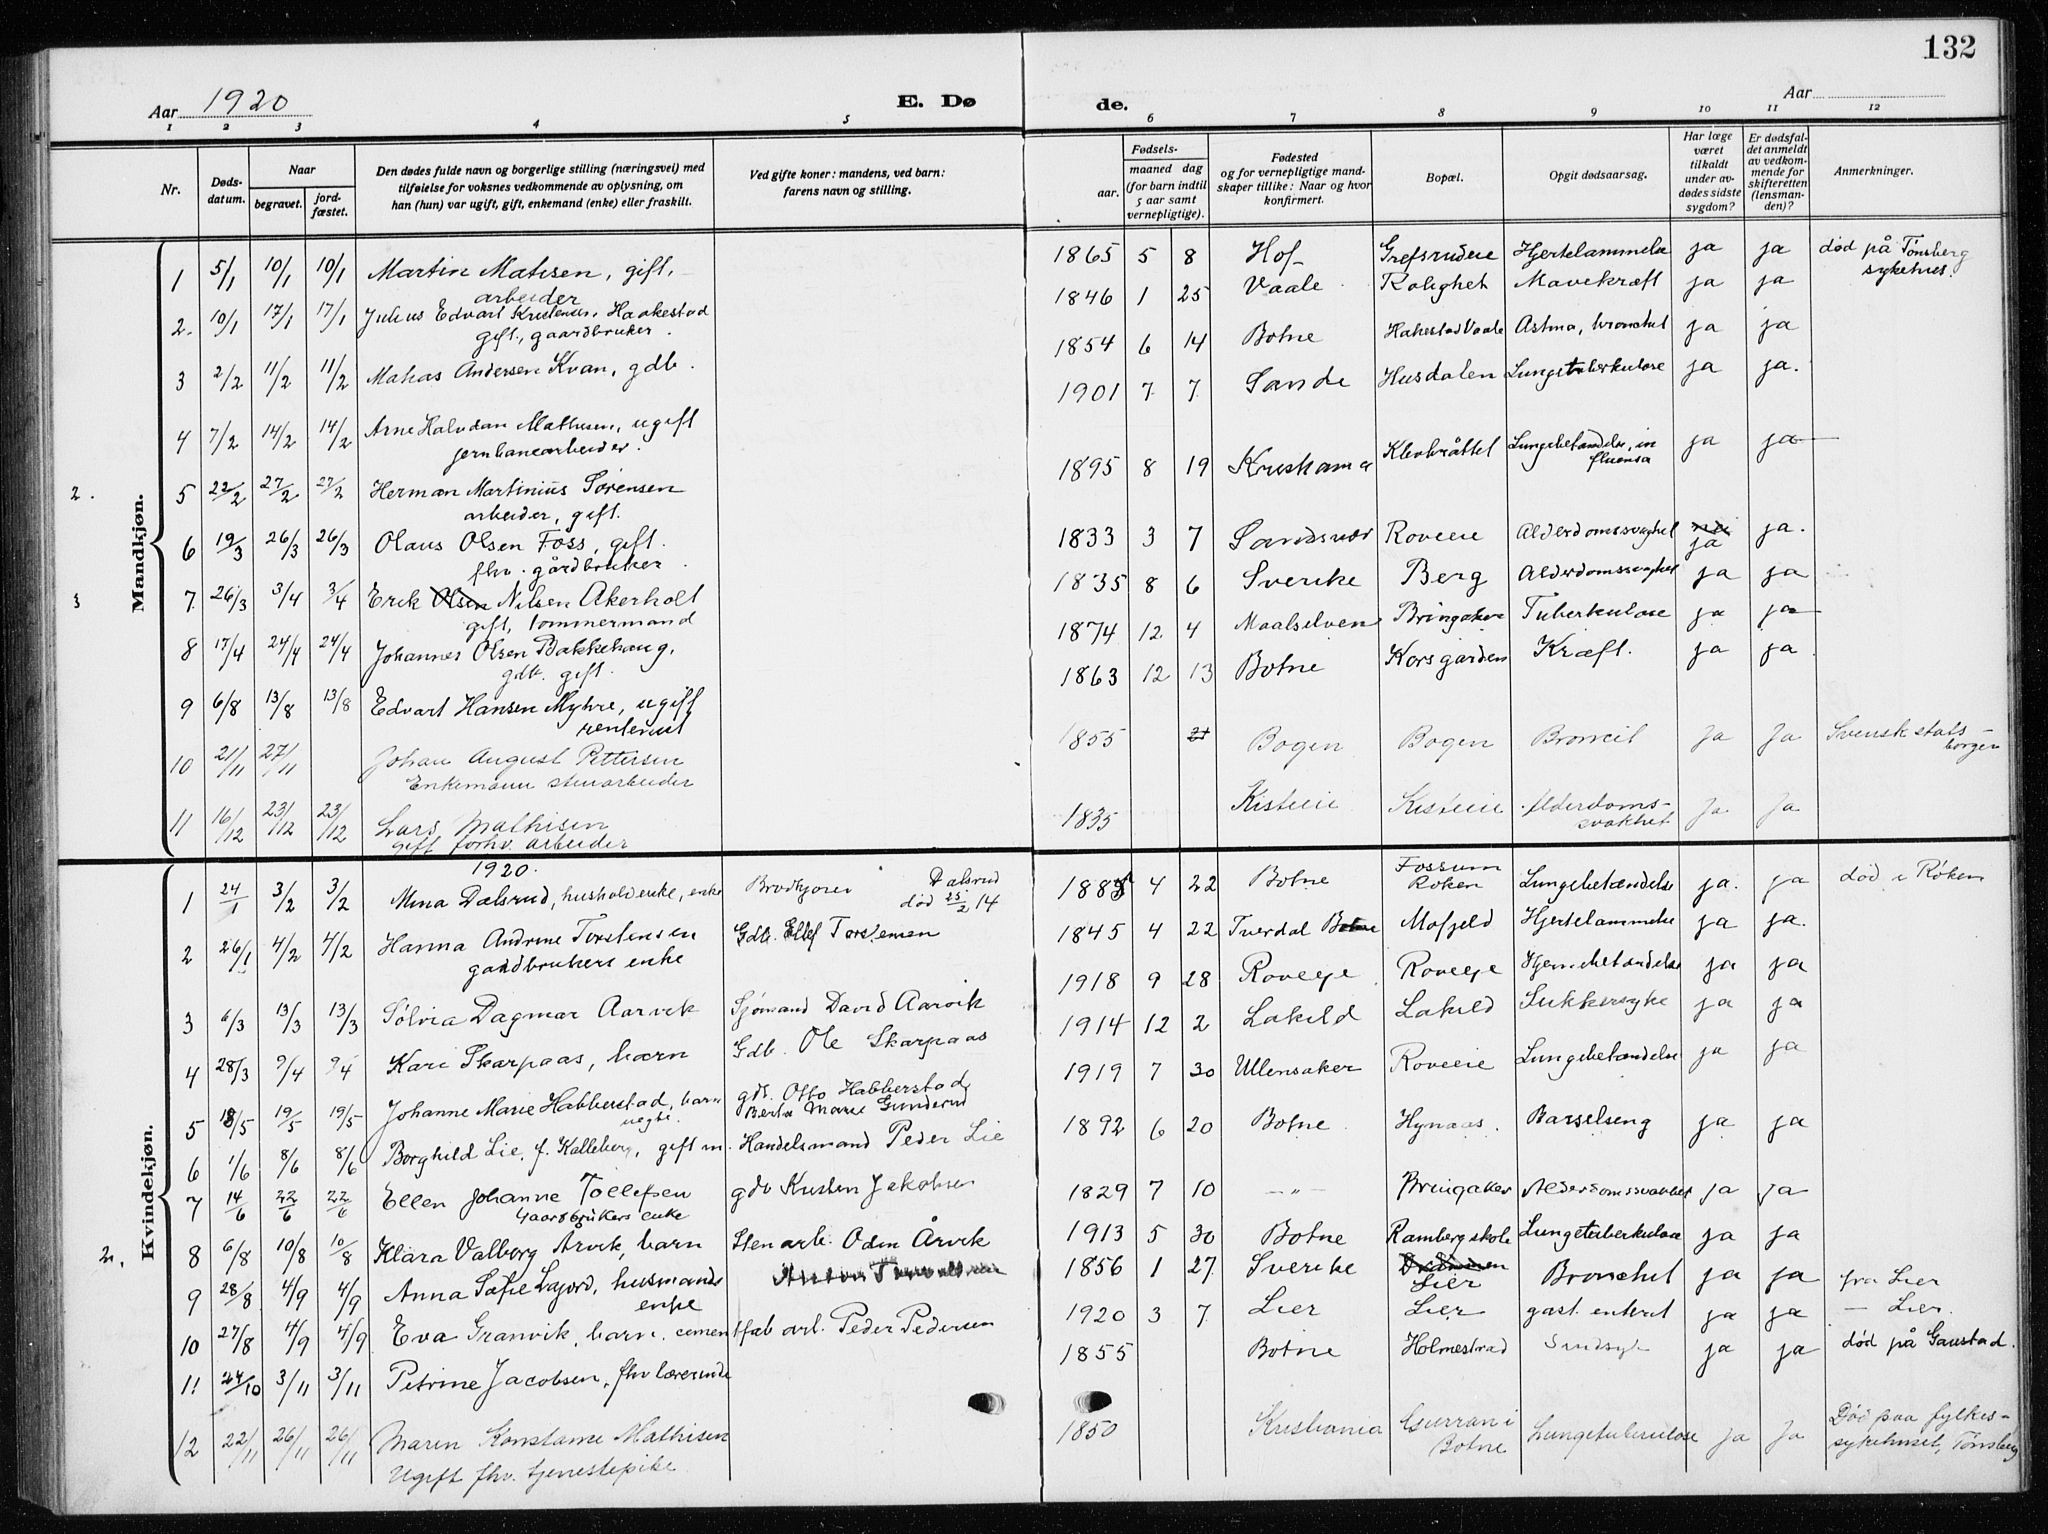 132
Aar 1920
E. Dø
de.
Aar
1 2 3 4 5 6 7 8 9 10 11 12
Nr.
Døds-
datum.
Naar
begravet.
jord-
fæstet.
Den dødes fulde navn og borgerlige stilling (næringsvei) med
tilføielse for voksnes vedkommende av oplysning, om
han (hun) var ugift, gift, enkemand (enke) eller fraskilt.
Ved gifte koner: mandens, ved barn:
farens navn og stilling.
Fødsels-
aar.
maaned dag
(for barn indtil
5 aar samt
vernepligtige).
Fødested
og for vernepligtige mand-
skaper tillike: Naar og hvor
konfirmert.
Bopæl.
Opgit dødsaarsag.
Har læge
været
tilkaldt
under av-
dødes sidste
sygdom?
Er dødsfal-
det anmeldt
av vedkom-
mende for
skifteretten
(lensman-
den)?
Anmerkninger.
Mandkjøn.
1 5/1 10/1 10/1 Martin Mathisen, gift, 1865 5 8 Hof Grefsrudeie Hjertelammelse ja ja død på Tønsberg
arbeider sykehus.
2. 10/1 17/1 17/1 Julius Edvart Kristensen Haakestad 1846 1 25 Vaale Rolighet Mavekræft ja ja
gift, gaardbruker
3 2/2 11/2 11/2 Mahas Andersen Kvan, gdb. 1854 6 14 Botne Hakestad Vaale Astma, bronchit ja ja
4 7/2 14/2 14/2 Arne Halvdan Mathisen, ugift 1901 7 7 Sande Husdalen Lungetuberkulose ja ja.
jernbanearbeider.
2. 5 22/2 27/2 27/2 Herman Martinius Sørensen 1895 8 19 Kristiania Klevbråttet Lungebetændelse, in
fluensa ja ja
arbeider, gift.
6 19/3 26/3 26/3 Olaus Olsen Foss, gift. 1833 3 7 Sandsvær Roveeie Alderdomssvaghet ja ja.
fhv. gårdbruker
3 7. 26/3 3/4 3/4 Erik Olsen Nilsen Akerholt 1835 8 6 Sverike Berg Alderdomssvaghet ja ja
gift, tømmermand
8 17/4 24/4 24/4 Johannes Olsen Bakkehaug, 1874 12 4 Maalselven Bringaker Tuberkulose ja ja
gdb. gift.
9 6/8 13/8 13/8 Edvart Hansen Myhre, ugift 1863 12 13 Botne Korsgården Kræft. ja ja
rentenist
10 21/11 27/11 Johan August Pettersen 1855 21 Bogen Bogen Broncit Ja Ja Svensk stats-
Enkemann stenarbeider borger
11 16/12 23/12 23/12 Lars Mathisen 1835 Kisteeie Kisteeie Alderdoms- Ja Ja
gift forhv. arbeider svakhet
Kvindekjøn.
1920.
1 24/1 3/2 3/2 Mina Dalsrud, husholderske, enke Brødkjører Dalsrud 1885 4 22 Botne Fossum
Røken Lungebetændelse ja. ja død i Røken
død 25/2 14
2 26/1 4/2 4/2 Hanna Andrine Torstensen Gdb. Ellef Torstensen 1845 4 22 Tverdal Botne Mofjeld Hjertelammelse ja ja.
gardbrukers enke
3 6/3 13/3 13/3 Sølvia Dagmar Aarvik Sjømand David Aarvik 1918 9 28 Roveeje Roveeje Hjernebetændelse ja ja
4 28/3 9/4 9/4 Kari Skarpaas, barn Gdb. Ole Skarpaas 1914 12 2 Lakild Lakild Sukkersyke ja ja
5 18/5 19/5 19/5 Johanne Marie Habberstad, barn gdb. Otto Habberstad 1919 7 30 Ullensaker Roveeie Lungebetændelse ja ja
uegte. Berta Marie Gunderud
6 1/6 8/6 8/6 Borghild Lie, f. Kalleberg, gift m. Handelsmand Peder Lie 1892 6 20 Botne Hynaas. Barselseng ja ja
7 14/6 22/6 22/6 Ellen Johanne Tollefsen gdb Kristen Jakobsen 1829 7 10 —„— Bringaker Alderdomssvakhet ja ja
gaardbrukers enke
2. 8 6/8 10/8 10/8 Klara Valborg Arvik, barn Stenarb. Odin Årvik 1913 5 30 Botne Ramberg skole Lungetuberkulose ja ja
9 28/8 4/9 4/9 Anna Sofie Lajord, husmands 1856 1 27 Sverike Drammen
Lier Bronchit ja ja fra Lier
enke
10 27/8 4/9 4/9 Eva Granvik, barn. cementfab arb. Peder Pedersen 1920 3 7 Lier Lier gast. enterit ja ja — Lier.
11 24/10 3/11 3/11 Petrine Jacobsen, fhv lærerinde 1855 Botne Holmestrad Sindsyk ja ja død på Gaustad.
12 22/11 26/11 26/11 Maren Konstanse Mathisen 1850 Kristiania Gurran i
Botne Lungetuberkulose ja Ja Død paa fylkes-
sykehuset, Tønsberg
Ugift fhv. tjenestepike